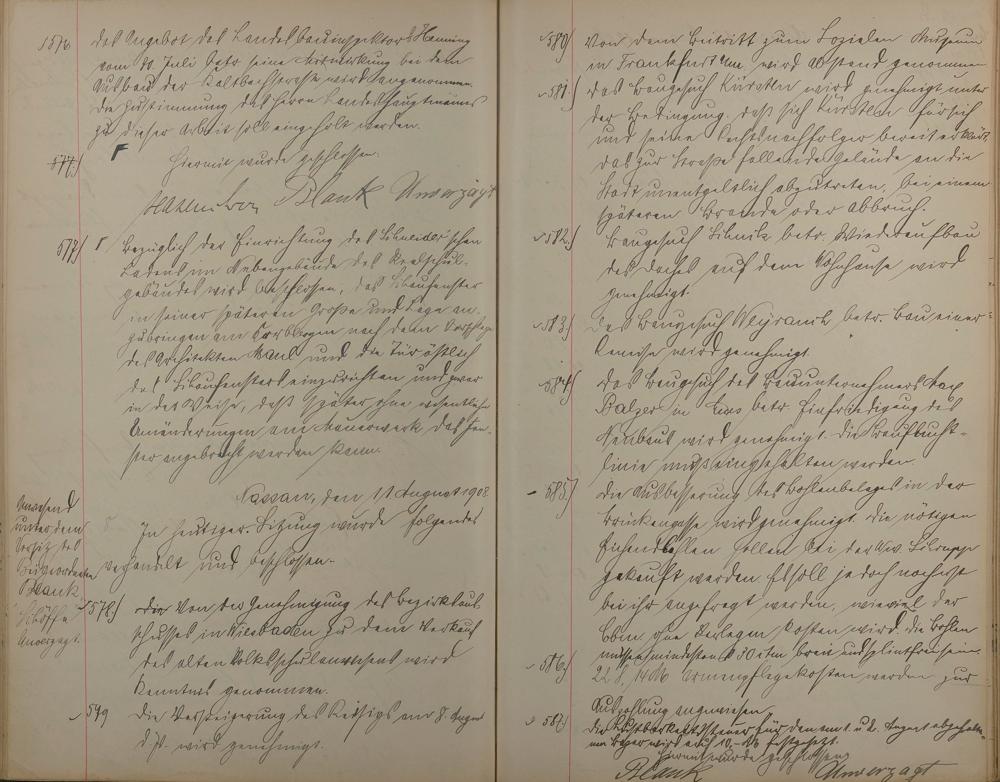 1576 das Angebot des Landesbauinspektors Henning
vom 10 Juli betr. seine Mitwirkung bei dem
Ausbau der Kaltbachstrasse wird angenommen.
Die Zustimmung des Herrn Landeshauptmanns
zu dieser Arbeit soll eingeholt werden.
577) Hiermit wurde geschlossen.
Blank Unverzagt
577) Bezüglich der Einrichtung des Schneider'schen
Ladens im Nebengebäude des Realschul-
gebäudes wird beschlossen, das Schaufenster
in seiner späteren Größe und Lage an-
zubringen am nach dem Vorschlage
des Architekten und die Tür östlich
des Schaufensters einzurichten und zwar
in der Weise, daß später ohne wesentliche
Umänderungen am Mauerwerk das Fen-
ster angebracht werden kann.
Nassau, den 11 August 1908
Anwesend
unter dem
Vorsitz des
Beigeordneten
Blank
Schöffe
Unverzagt.
In heutiger Sitzung wurde folgendes
verhandelt und beschlossen.
578) Von der Genehmigung des Bezirksaus-
schusses in Wiesbaden zu dem Verkauf
des alten Volksschulanwesens wird
Kenntnis genommen.
579 Die Versteigerung des Reisigs am 8. August
d. J. wird genehmigt.
580) Von dem Beitritt zum Sozialen Museum
in Frankfurt a/M. wird Abstand genommen
581) das Baugesuch Kürsten wird genehmigt unter
der Bedingung, daß sich Kürsten für sich
und seine Rechtsnachfolger bereit erklärt,
das zur Straße fallende Gelände an die
Stadt unentgeltlich abzutreten, bei einem
späteren Brande oder Abbruch.
582) Baugesuch betr. Wiederaufbau
des Daches auf dem Wohnhause wird
genehmigt.
583) Das Baugesuch betr. Bau einer
Remise wird genehmigt.
584) Das Baugesuch des Bauunternehmers
Balzer in Ems betr. Einfriedigung des
Neubaus wird genehmigt. Die Bauflucht-
linie muß eingehalten werden.
585) Die Ausbesserung des Bohlenbelages in der
Brückengasse wird genehmigt. Die nötigen
Eichenbohlen sollen bei der Ww.
gekauft werden. Es soll jedoch
bei ihr angefragt werden, wieviel der
cbm kosten wird. Die Bohlen
müssen mindestens 30 ctm breit und splintfrei sein.
586) 22 Armenpflegekosten werden zur
Auszahlung angewiesen.
587) Die Lustbarkeitssteuer für den am 1. u. 2. August
wird auf 10,- M festgesetzt.
Hiermit wurde geschlossen
Blank Unverzagt